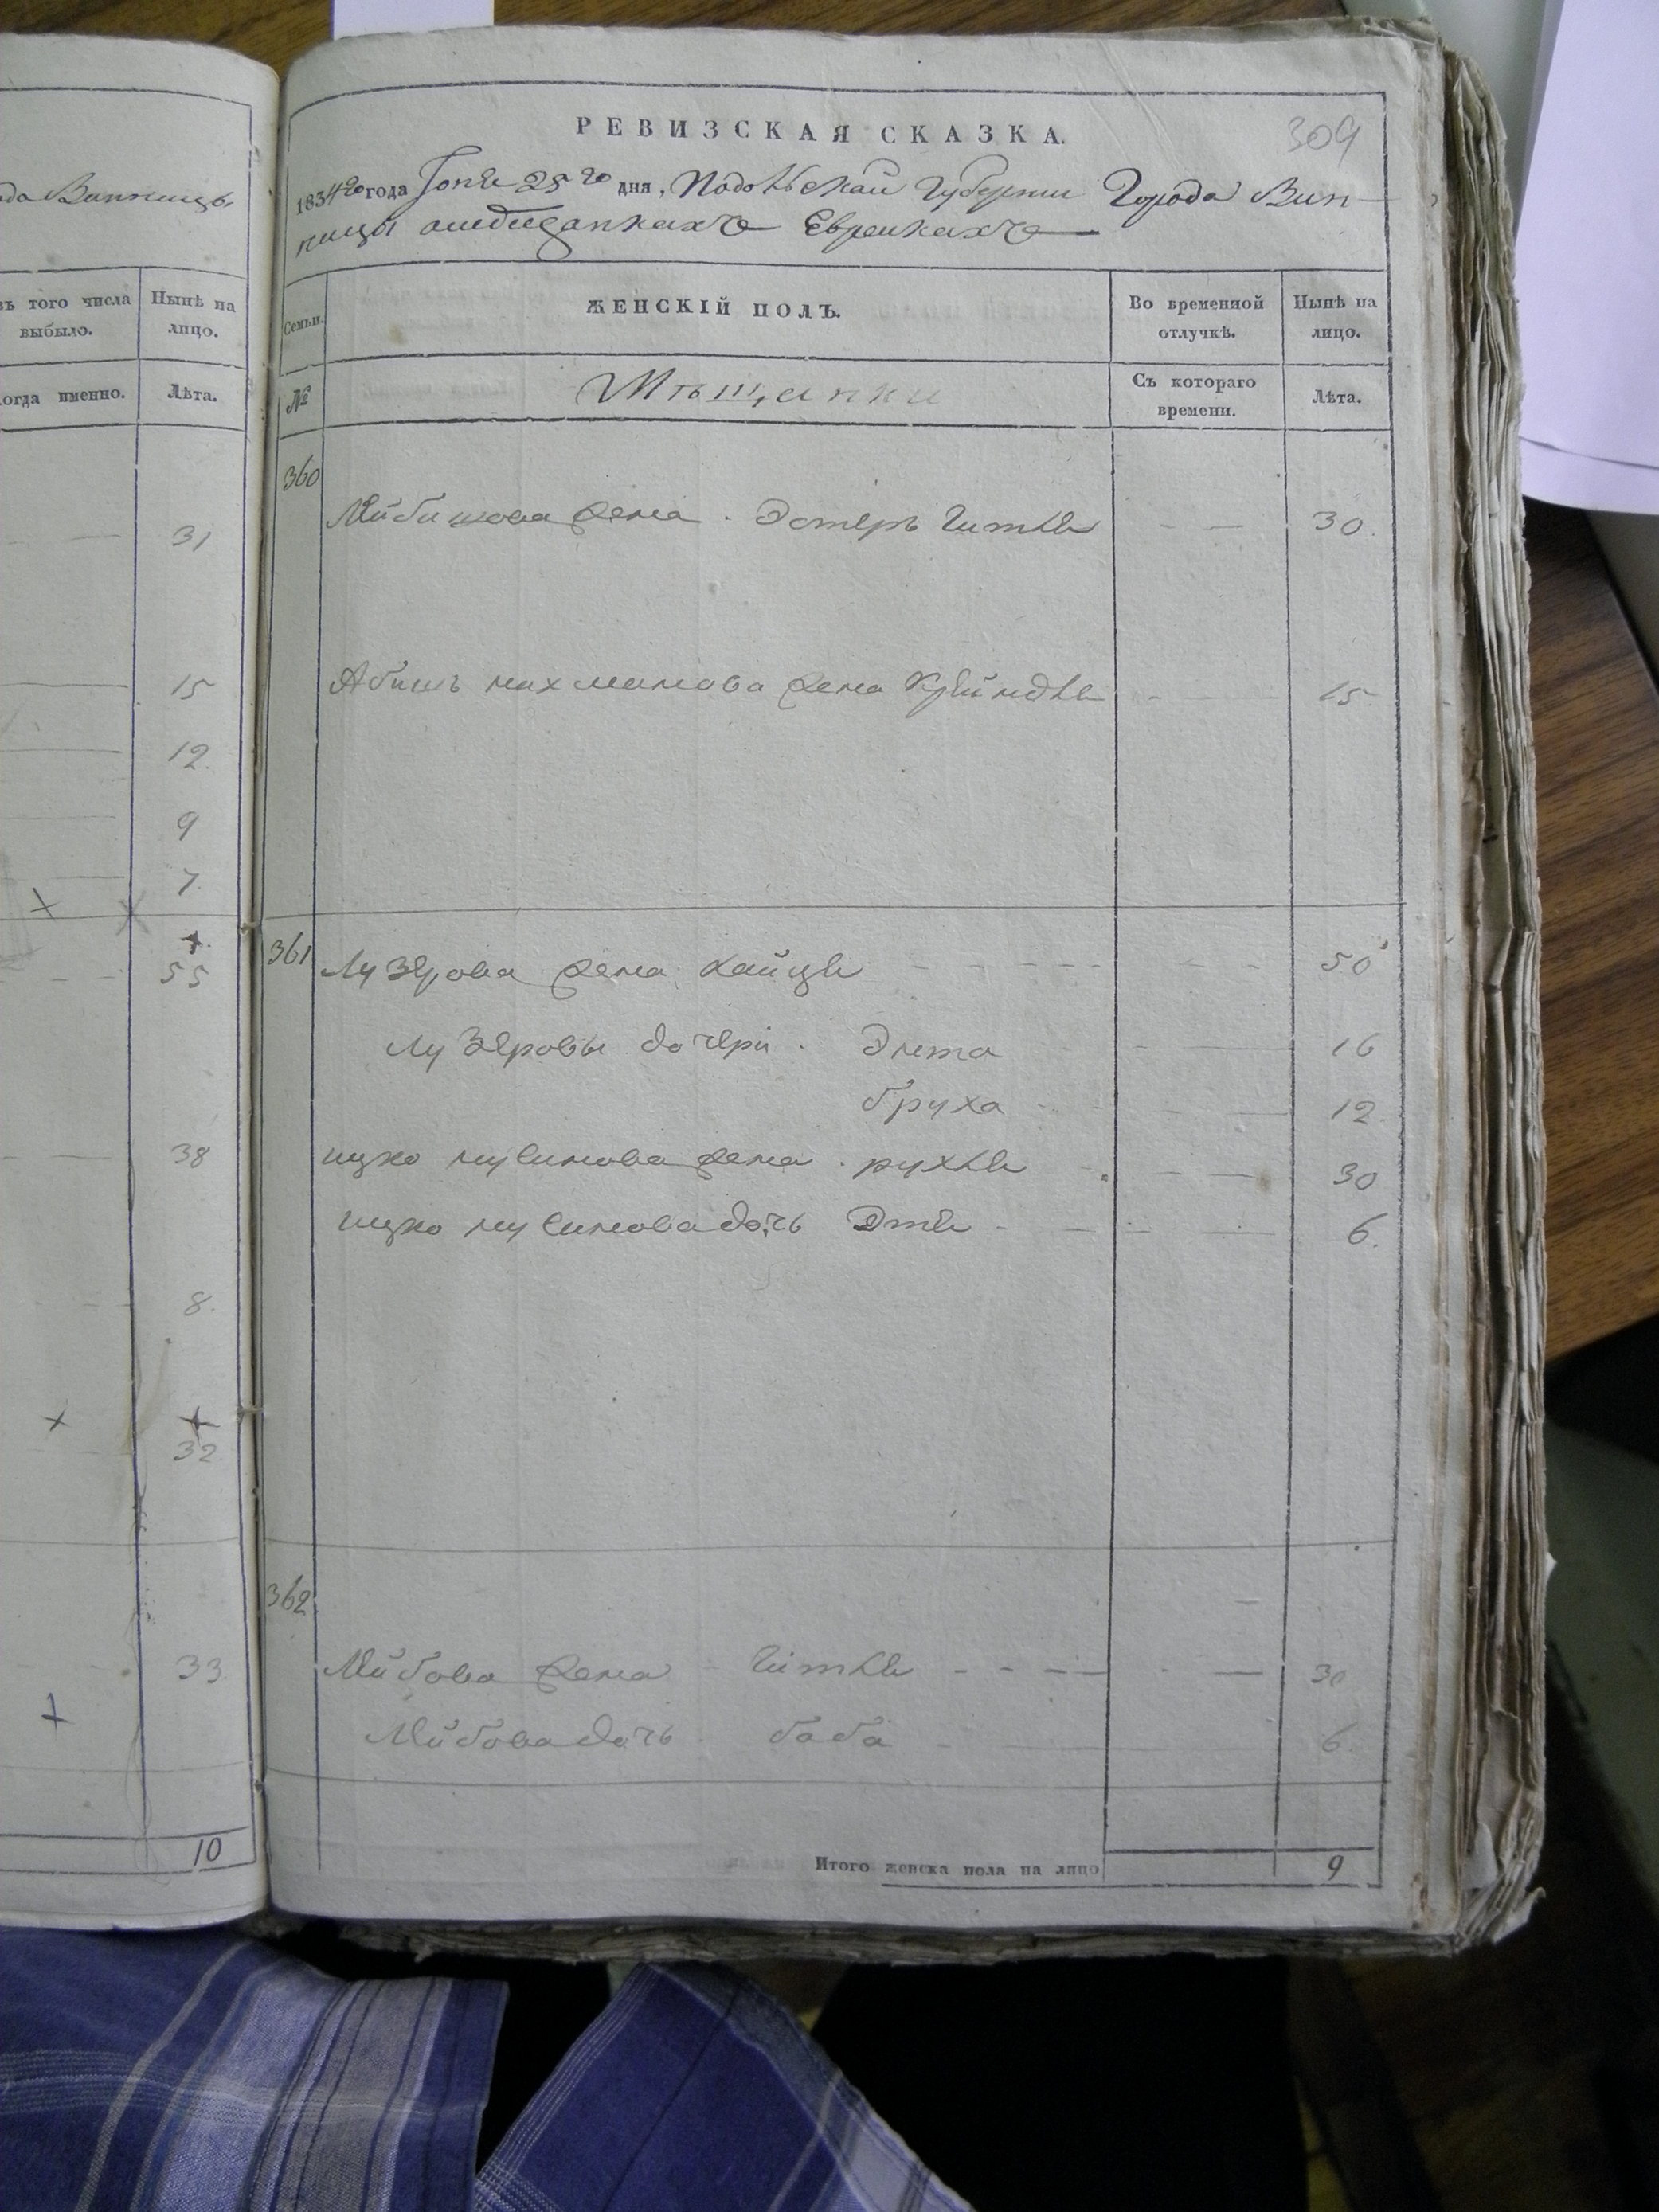 да Винницы
зъ того числа
выбыло.
Нынѣ на
лицо.
огда именно.
Лѣта.
31
15
12
9
7
55
38
8
32
33
10
309
РЕВИЗСКАЯ СКАЗКА.
1834го года Іюня 25го дня, Подольской Губерніи Города Вин-
ницы Еврейкахъ
Семьи.
ЖЕНСКІЙ ПОЛЪ.
Во временной
отлучкѣ.
Нынѣ на
лицо.
№
Мѣщанки
Съ котораго
времени.
Лѣта.
360
Лейбишова жена. Эстеръ Гитля 30.
Абишъ нахманова жена Крейндля 15
361
Лузерова жена Хайця 50
Лузеровы дочери. Элета 16
бруха 12
ицко мусинова жена. рухля 30
ицко мусинова дочь Этя 6.
362
Лейбова жена Гитля 30
Лейбова дочь баба 6
Итого женска пола на лицо 9